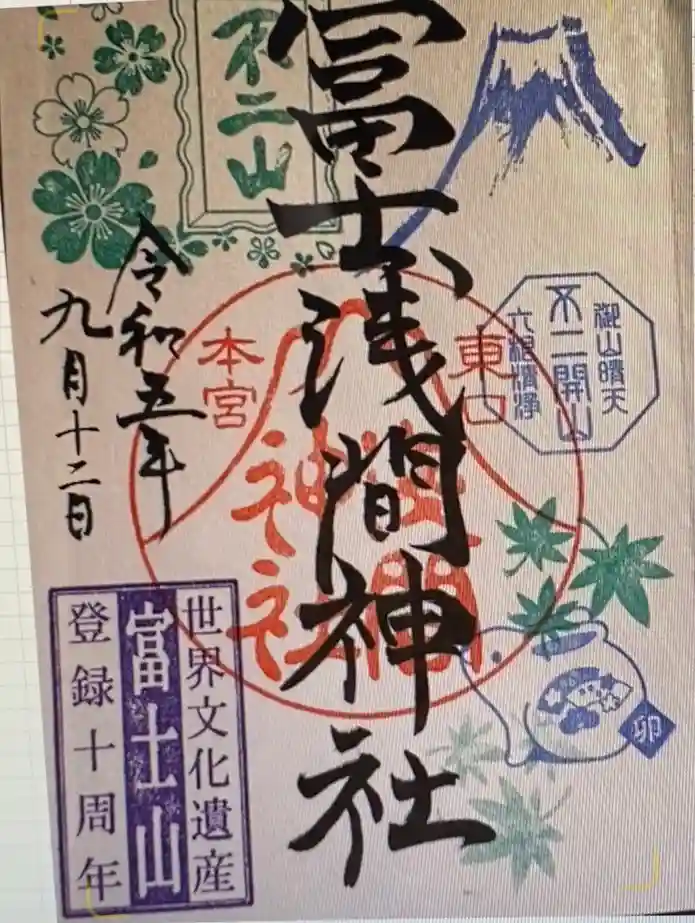 不二山
富士浅間神社
東口
本宮
浅間
神社
御山晴天
不二開山
六根清浄
令和五年
九月十二日
世界文化遺産
富士山
登録十周年
卯